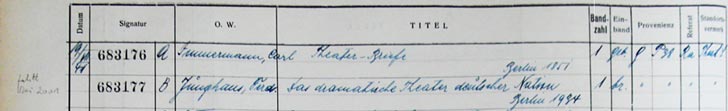 Datum Signatur O. W. TITEL Bandzahl Einband Provenienz Referat Standortvermerk
683176 A Immermann, Carl Theater-Briefe 1 geb G
Berlin 1851
683177 B Junghans, Ferd. Das dramatische Theater deutscher Nation 1 br.
Berlin 1934
fehlt
2001